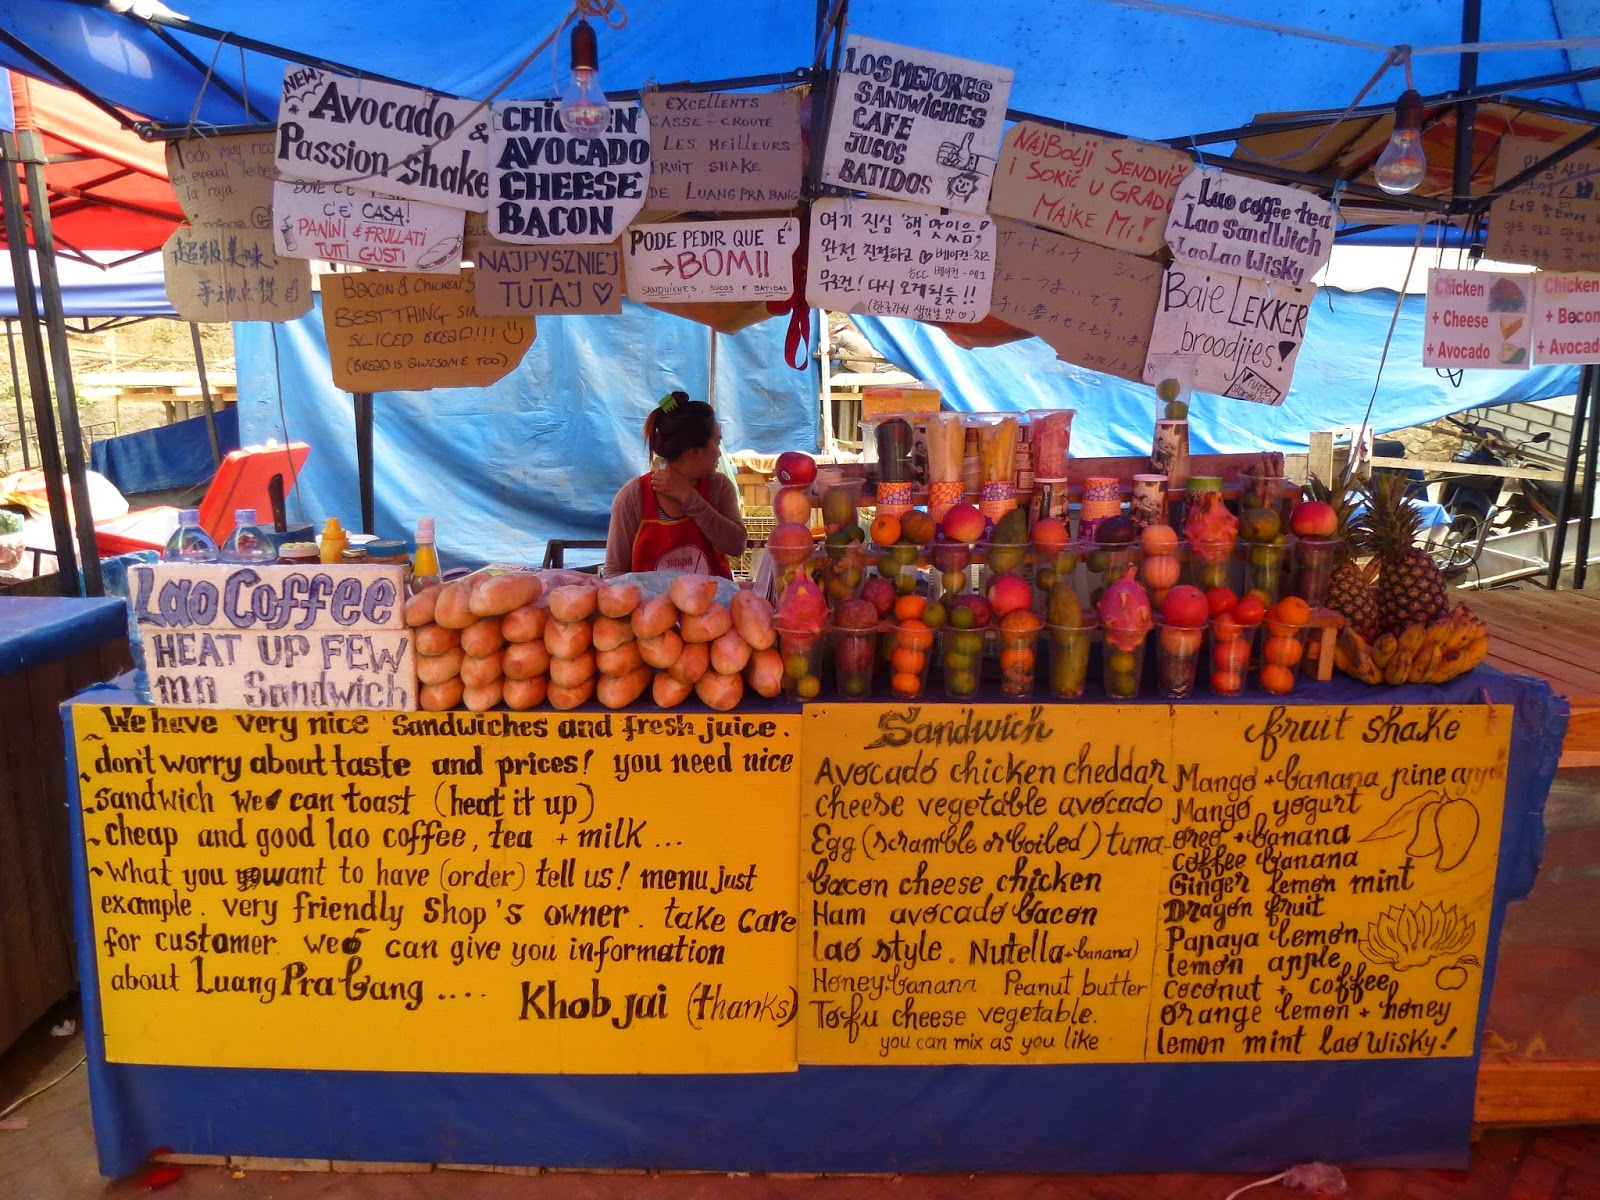 NEW
Avocado &
Passion shake
CHICKEN
AVOCADO
CHEESE
BACON
EXCELLENTS
CASSE-CROUTE
LES MEILLEURS
FRUIT SHAKE
DE LUANG PRABANG
LOS MEJORES
SANDWICHES
CAFE
JUGOS
BATIDOS
NAJBOLJI SENDVIČ
I SOKIĆ U GRADU
MAJKE MI!
Lao coffee tea
Lao Sandwich
LaoLao Wisky
Todo muy rico
en especial
la raja
超级美味!
手动点赞
C'È CASA!
PANINI & FRULLATI
TUTTI GUSTI
BACON & CHICKEN
BEST THING
SLICED BREAD!!!
(BREAD IS AWESOME TOO)
NAJPYSZNIEJ
TUTAJ ♡
PODE PEDIR QUE É
→BOM!!
SANDUÍCHES, SUCOS E BATIDAS
여기 진심 핵 맛있음!
완전 친절하고 ♡베이컨·치즈
베이컨-에그
무조건! 다시 오게될듯!!
(한국가서 생각날 맛♡)
サンドイッチ
Baie LEKKER
broodjies!
Chicken
+ Cheese
+ Avocado
Chicken
+ Bacon
+ Avocado
Lao Coffee
HEAT UP FEW
mn Sandwich
We have very nice Sandwiches and fresh juice.
don't worry about taste and prices! you need nice
sandwich we can toast (heat it up)
cheap and good lao coffee, tea + milk ...
What you want to have (order) tell us! menu just
example. very friendly Shop's owner. take care
for customer we can give you information
about Luang Prabang ....
Khob jai (thanks)
Sandwich
Avocado chicken cheddar
cheese vegetable avocado
Egg (scramble or boiled) tuna
bacon cheese chicken
Ham avocado bacon
lao style. Nutella + banana)
Honey-banana Peanut butter
Tofu cheese vegetable.
you can mix as you like
fruit shake
Mango + banana pine apple
Mango yogurt
oreo + banana
coffee banana
Ginger lemon mint
Dragon fruit
Papaya lemon
lemon apple
coconut + coffee
orange lemon + honey
lemon mint lao wisky!